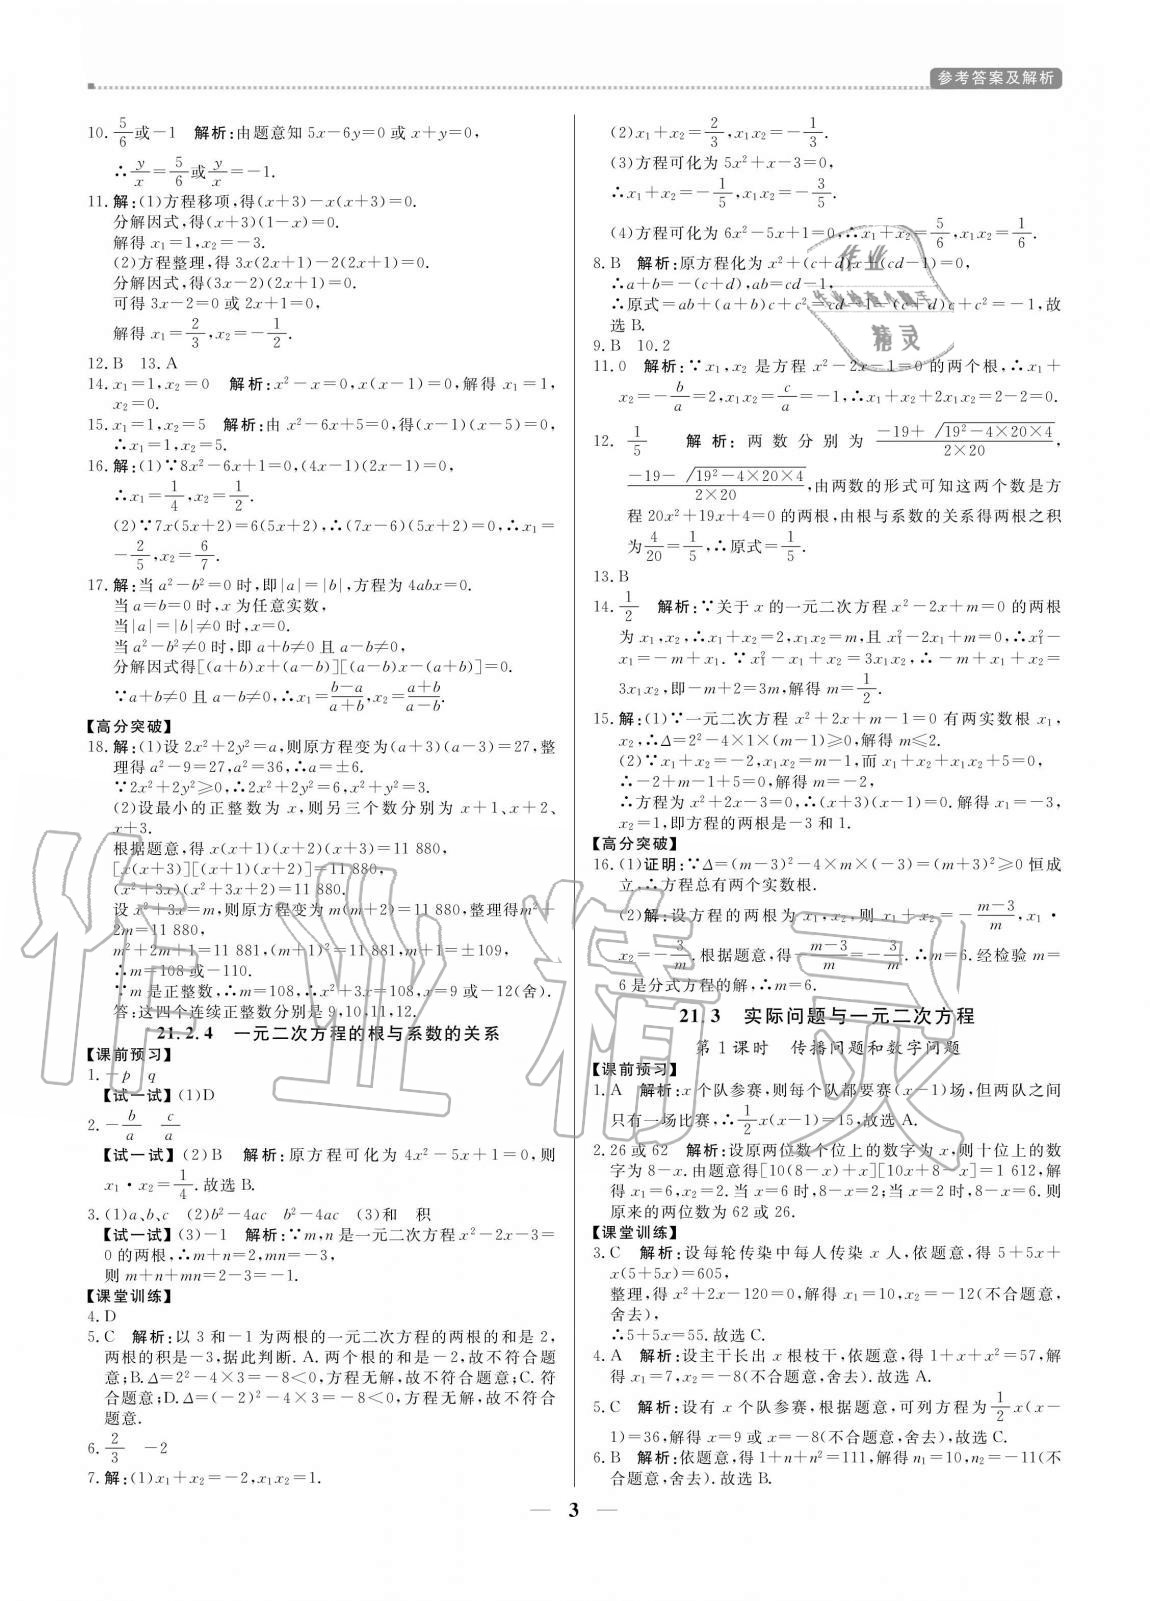 参考答案及解析
10. 5/6 或-1 解析:由题意知 5x-6y=0 或 x+y=0,
∴y/x=5/6或y/x=-1.
11. 解:(1)方程移项,得(x+3)-x(x+3)=0.
分解因式,得(x+3)(1-x)=0.
解得 x₁=1,x₂=-3.
(2)方程整理,得 3x(2x+1)-2(2x+1)=0.
分解因式,得(3x-2)(2x+1)=0.
可得 3x-2=0 或 2x+1=0,
解得 x₁=2/3,x₂=-1/2.
12. B 13. A
14. x₁=1,x₂=0 解析:x²-x=0,x(x-1)=0,解得 x₁=1,
x₂=0.
15. x₁=1,x₂=5 解析:由 x²-6x+5=0,得(x-1)(x-5)=0,
∴x₁=1,x₂=5.
16. 解:(1)∵8x²-6x+1=0,(4x-1)(2x-1)=0,
∴x₁=1/4,x₂=1/2.
(2)∵7x(5x+2)=6(5x+2),∴(7x-6)(5x+2)=0,∴x₁=
-2/5,x₂=6/7.
17. 解:当 a²-b²=0 时,即|a|=|b|,方程为 4abx=0.
当 a=b=0 时,x 为任意实数,
当|a|=|b|≠0 时,x=0.
当 a²-b²≠0 时,即 a+b≠0 且 a-b≠0,
分解因式得[(a+b)x+(a-b)][(a-b)x-(a+b)]=0.
∵a+b≠0 且 a-b≠0,∴x₁=(b-a)/(a+b),x₂=(a+b)/(a-b).
【高分突破】
18. 解:(1)设 2x²+2y²=a,则原方程变为(a+3)(a-3)=27,整
理得 a²-9=27,a²=36,∴a=±6.
∵2x²+2y²≥0,∴2x²+2y²=6,x²+y²=3.
(2)设最小的正整数为 x,则另三个数分别为 x+1、x+2、
x+3.
根据题意,得 x(x+1)(x+2)(x+3)=11 880,
[x(x+3)][(x+1)(x+2)]=11 880,
(x²+3x)(x²+3x+2)=11 880.
设 x²+3x=m,则原方程变为 m(m+2)=11 880,整理得m²+
2m=11 880,
m²+2m+1=11 881,(m+1)²=11 881,m+1=±109,
∴m=108 或-110.
∵m 是正整数,∴m=108,∴x²+3x=108,x=9 或-12(舍).
答:这四个连续正整数分别是 9,10,11,12.
21.2.4 一元二次方程的根与系数的关系
【课前预习】
1. -p q
【试一试】(1)D
2. -b/a c/a
【试一试】(2)B 解析:原方程可化为 4x²-5x+1=0,则
x₁·x₂=1/4.故选 B.
3. (1)a、b、c (2)b²-4ac b²-4ac (3)和 积
【试一试】(3)-1 解析:∵m,n 是一元二次方程 x²-2x-3=
0 的两根,∴m+n=2,mn=-3,
则 m+n+mn=2-3=-1.
【课堂训练】
4. D
5. C 解析:以 3 和-1 为两根的一元二次方程的两根的和是 2,
两根的积是-3,据此判断. A. 两个根的和是-2,故不符合题
意;B.Δ=2²-4×3=-8<0,方程无解,故不符合题意;C. 符
合题意;D.Δ=(-2)²-4×3=-8<0,方程无解,故不符合
题意.
6. 2/3 -2
7. 解:(1)x₁+x₂=-2,x₁x₂=1.
(2)x₁+x₂=2/3,x₁x₂=-1/3.
(3)方程可化为 5x²+x-3=0,
∴x₁+x₂=-1/5,x₁x₂=-3/5.
(4)方程可化为 6x²-5x+1=0,∴x₁+x₂=5/6,x₁x₂=1/6.
8. B 解析:原方程化为 x²+(c+d)x+(cd-1)=0,
∴a+b=-(c+d),ab=cd-1,
∴原式=ab+(a+b)c+c²=cd-1-(c+d)c+c²=-1,故
选 B.
9. B 10. 2
11. 0 解析:∵x₁,x₂ 是方程 x²-2x-1=0 的两个根,∴x₁+
x₂=-b/a=2,x₁x₂=c/a=-1,∴x₁+x₂+2x₁x₂=2-2=0.
12. 1/5 解析:两数分别为 (-19+√(19²-4×20×4))/(2×20),
(-19-√(19²-4×20×4))/(2×20),由两数的形式可知这两个数是方
程 20x²+19x+4=0 的两根,由根与系数的关系得两根之积
为4/20=1/5,∴原式=1/5.
13. B
14. 1/2 解析:∵关于 x 的一元二次方程 x²-2x+m=0 的两根
为 x₁,x₂,∴x₁+x₂=2,x₁x₂=m,且 x₁²-2x₁+m=0,∴x₁²-
x₁=-m+x₁. ∵x₁²-x₁+x₂=3x₁x₂,∴-m+x₁+x₂=
3x₁x₂,即-m+2=3m,解得 m=1/2.
15. 解:(1)∵一元二次方程 x²+2x+m-1=0 有两实数根 x₁,
x₂,∴Δ=2²-4×1×(m-1)≥0,解得 m≤2.
(2)∵x₁+x₂=-2,x₁x₂=m-1,而 x₁+x₂+x₁x₂+5=0,
∴-2+m-1+5=0,解得 m=-2,
∴方程为 x²+2x-3=0,∴(x+3)(x-1)=0.解得 x₁=-3,
x₂=1,即方程的两根是-3 和 1.
【高分突破】
16. (1)证明:∵Δ=(m-3)²-4×m×(-3)=(m+3)²≥0 恒成
立,∴方程总有两个实数根.
(2)解:设方程的两根为 x₁,x₂,则 x₁+x₂=-(m-3)/m,x₁·
x₂=-3/m.根据题意,得-(m-3)/m=-3/m.∴m=6.经检验 m=
6 是分式方程的解,∴m=6.
21.3 实际问题与一元二次方程
第 1 课时 传播问题和数字问题
【课前预习】
1. A 解析:x 个队参赛,则每个队都要赛(x-1)场,但两队之间
只有一场比赛,∴1/2x(x-1)=15,故选 A.
2. 26 或 62 解析:设原两位数个位上的数字为 x,则十位上的数
字为 8-x.由题意得[10(8-x)+x][10x+8-x]=1 612,解
得 x₁=6,x₂=2.当 x=6 时,8-x=2;当 x=2 时,8-x=6.则
原来的两位数为 62 或 26.
【课堂训练】
3. C 解析:设每轮传染中每人传染 x 人,依题意,得 5+5x+
x(5+5x)=605,
整理,得 x²+2x-120=0,解得 x₁=10,x₂=-12(不合题意,
舍去),
∴5+5x=55.故选 C.
4. A 解析:设主干长出 x 根枝干,依题意,得 1+x+x²=57,解
得 x₁=7,x₂=-8(不合题意,舍去).故选 A.
5. C 解析:设有 x 个队参赛,根据题意,可列方程为1/2x(x-
1)=36,解得 x=9 或 x=-8(不合题意,舍去),故选 C.
6. B 解析:依题意,得 1+n+n²=111,解得 n₁=10,n₂=-11(不
合题意,舍去).故选 B.
3
作业精灵
作业
精灵